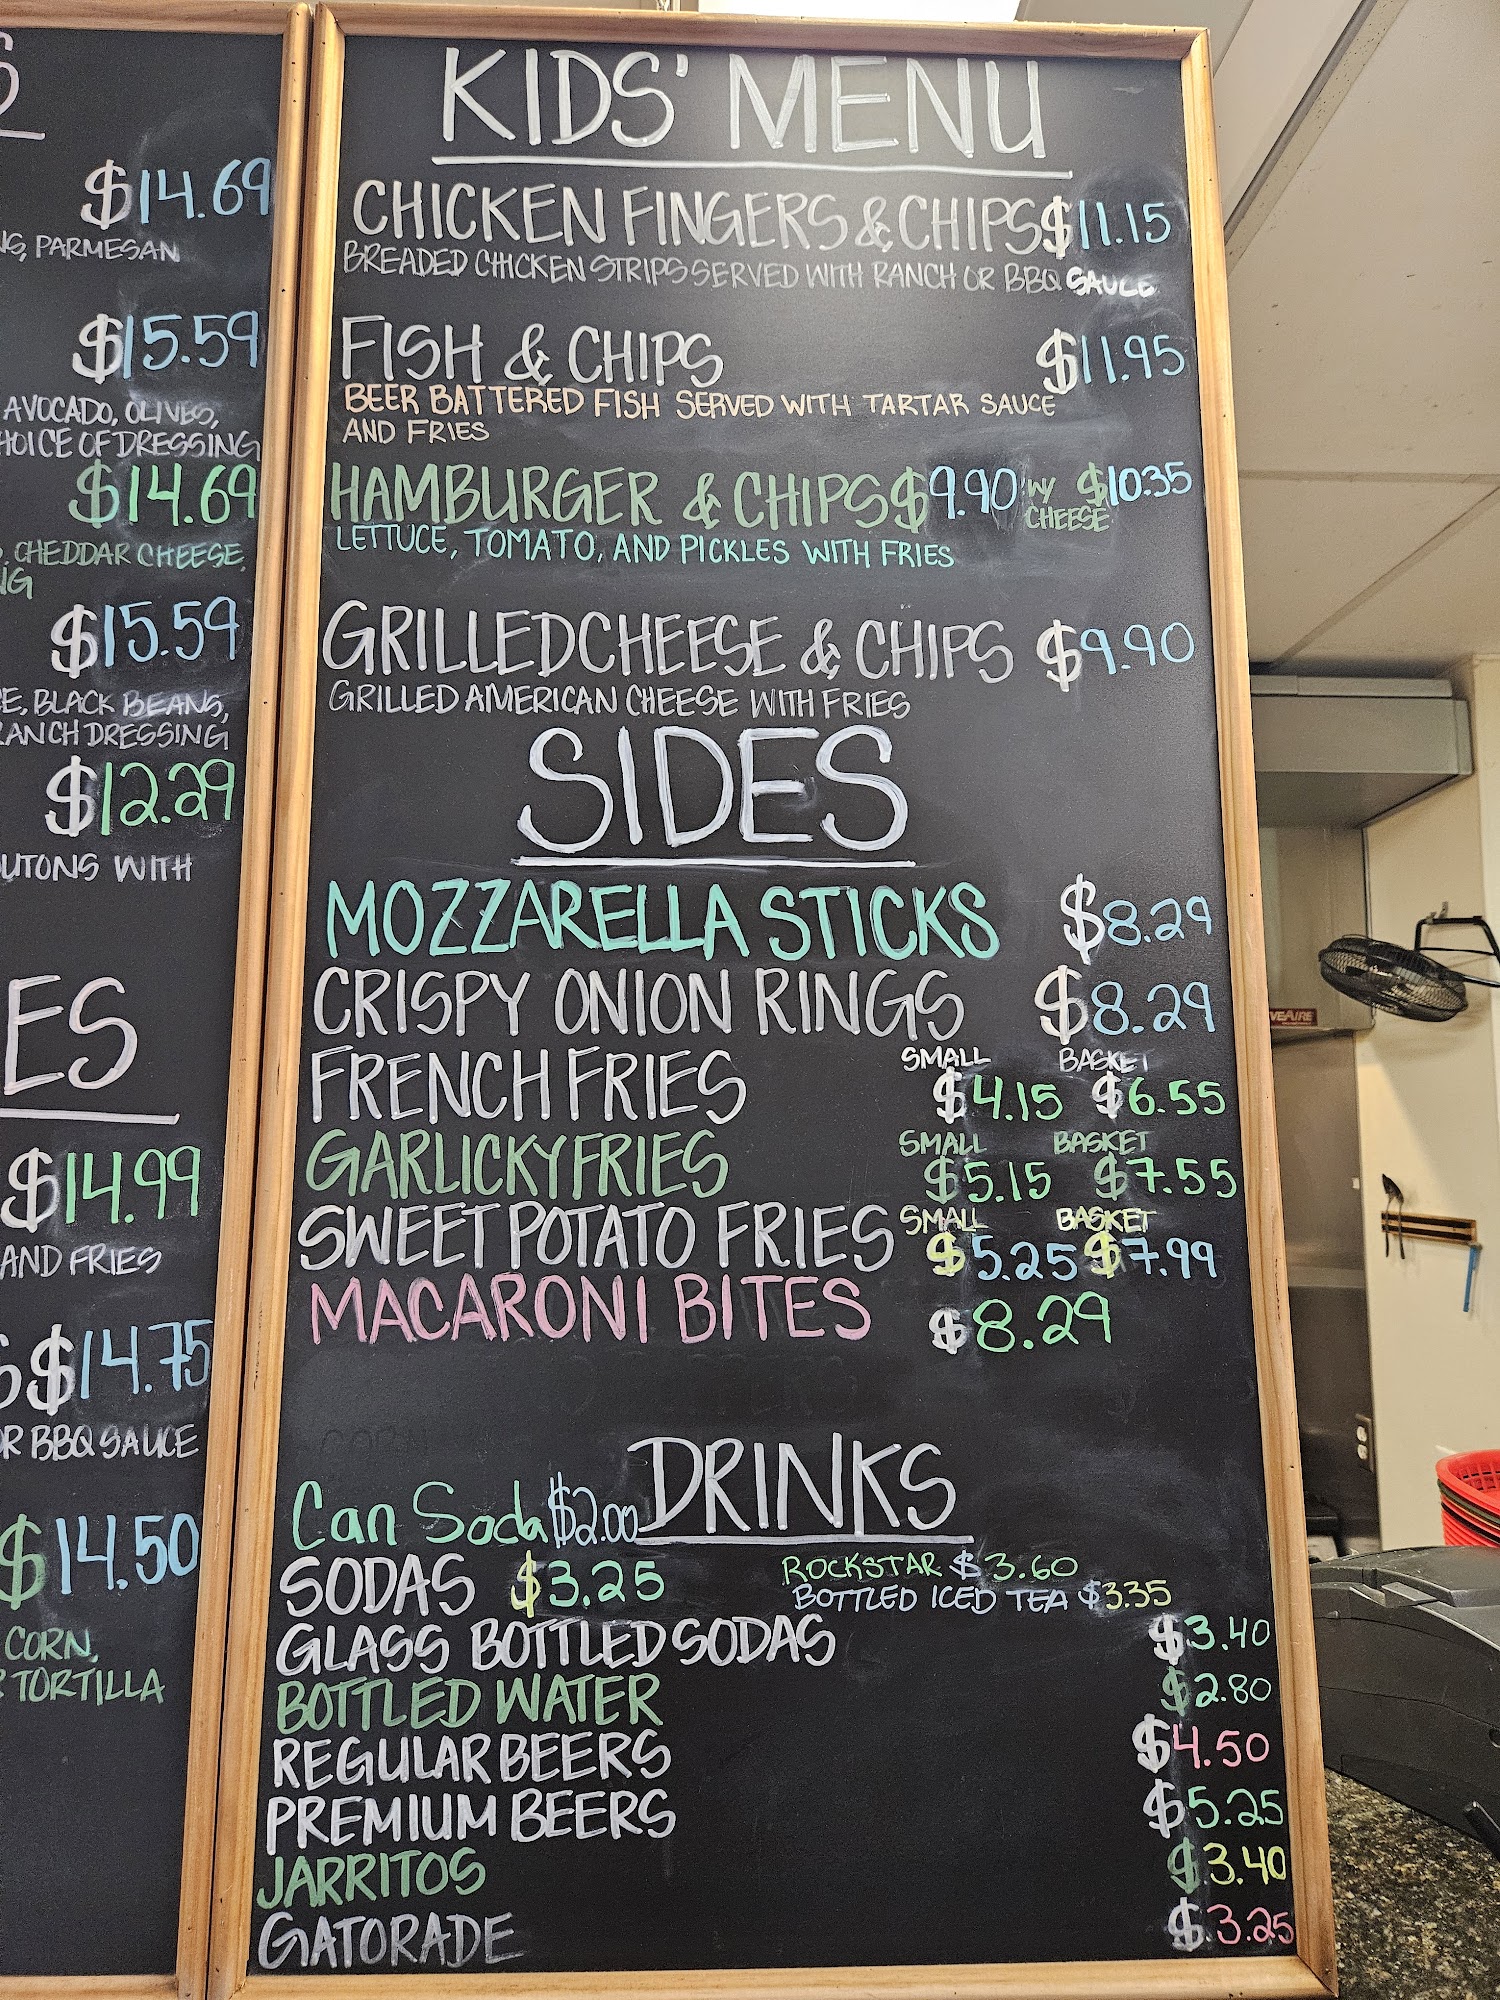 S
$14.69
NS, PARMESAN
$15.59
AVOCADO, OLIVES,
HOICE OF DRESSING
$14.69
, CHEDDAR CHEESE,
NG
$15.59
CE, BLACK BEANS,
RANCH DRESSING
$12.29
UTONS WITH
ES
$14.99
AND FRIES
S $14.75
OR BBQ SAUCE
$14.50
CORN,
TORTILLA
KIDS' MENU
CHICKEN FINGERS & CHIPS $11.15
BREADED CHICKEN STRIPS SERVED WITH RANCH OR BBQ SAUCE
FISH & CHIPS $11.95
BEER BATTERED FISH SERVED WITH TARTAR SAUCE
AND FRIES
HAMBURGER & CHIPS $9.90 W/ CHEESE $10.35
LETTUCE, TOMATO, AND PICKLES WITH FRIES
GRILLED CHEESE & CHIPS $9.90
GRILLED AMERICAN CHEESE WITH FRIES
SIDES
MOZZARELLA STICKS $8.29
CRISPY ONION RINGS $8.29
SMALL BASKET
FRENCH FRIES $4.15 $6.55
SMALL BASKET
GARLICKY FRIES $5.15 $7.55
SMALL BASKET
SWEET POTATO FRIES $5.25 $7.99
MACARONI BITES $8.29
DRINKS
Can Soda $2.00
SODAS $3.25
ROCKSTAR $3.60
BOTTLED ICED TEA $3.35
GLASS BOTTLED SODAS $3.40
BOTTLED WATER $2.80
REGULAR BEERS $4.50
PREMIUM BEERS $5.25
JARRITOS $3.40
GATORADE $3.25